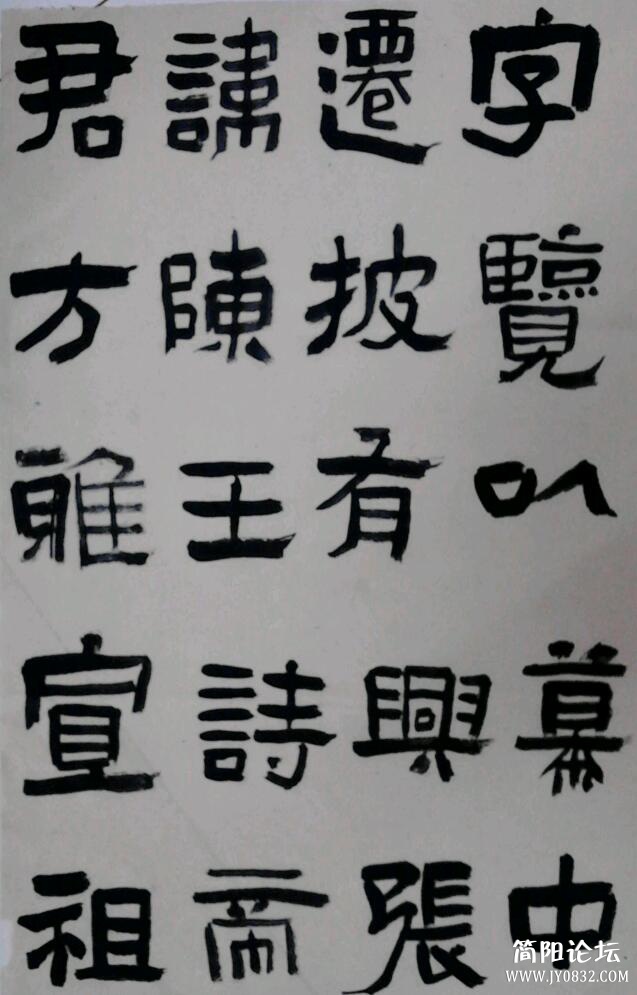 君諱遷字
方陳披覽
雅王有以
宣詩興幕
祖帝張中
简阳论坛
www.JY0832.com